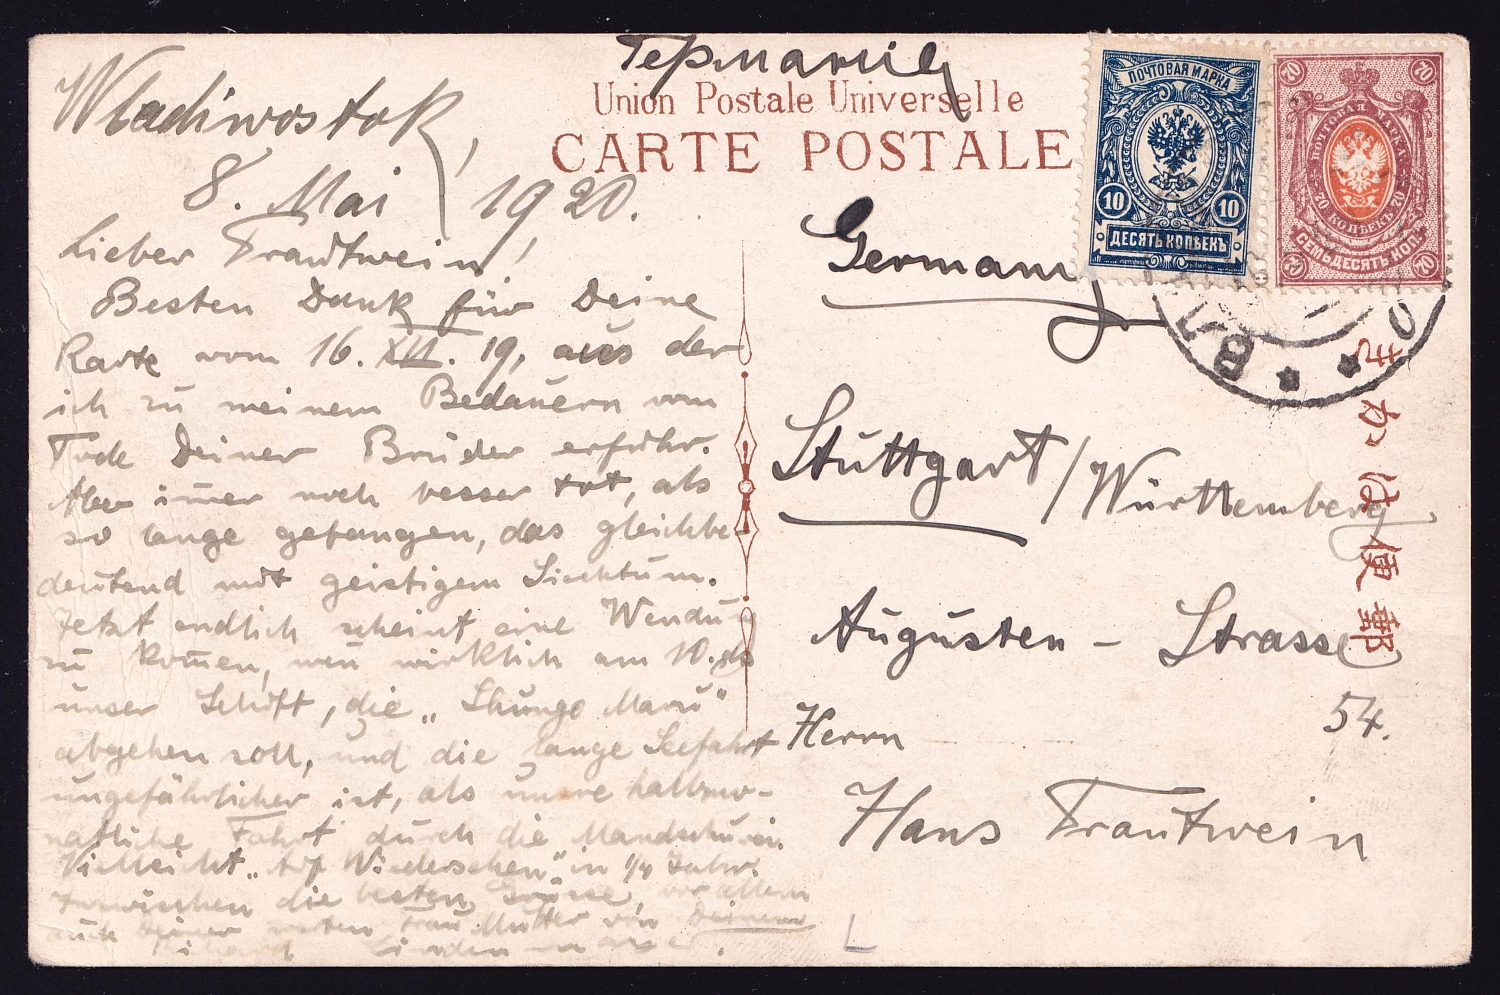 Wladiwostok,
8. Mai 1920.
Lieber Trautwein!
Besten Dank für Deine
Karte vom 16. XII. 19, aus der
ich zu meinem Bedauern vom
Tode Deiner Brüder erfuhr.
Aber im̄er noch besser tot, als
so lange gefangen, das gleichbe-
deutend mit geistigem Siechtum.
Jetzt endlich scheint eine Wendung
zu kom̄en, wen̄ wirklich am 10. ds
unser Schiff, die „Shungo Maru"
abgehen soll, und die lange Seefahrt
ungefährlicher ist, als unsre halbmo-
natliche Fahrt durch die Mandschurei.
Vielleicht „auf Wiedersehen" in 1/4 Jahr.
Inzwischen die besten Grüsse, vor allem
auch Deiner werten Frau Mutter von Deinem
Richard
Германія
Union Postale Universelle
CARTE POSTALE
Germany
Stuttgart / Württemberg
Augusten - Strasse
54.
Herrn
Hans Trautwein
ПОЧТОВАЯ МАРКА
10 10
ДЕСЯТЬ КОПѢЕКЪ
70 70
ПОЧТОВАЯ МАРКА
70 КОПѢЕКЪ 70
СЕМЬДЕСЯТЬ КОП.
70 70
ВЛ
きかは便郵
L